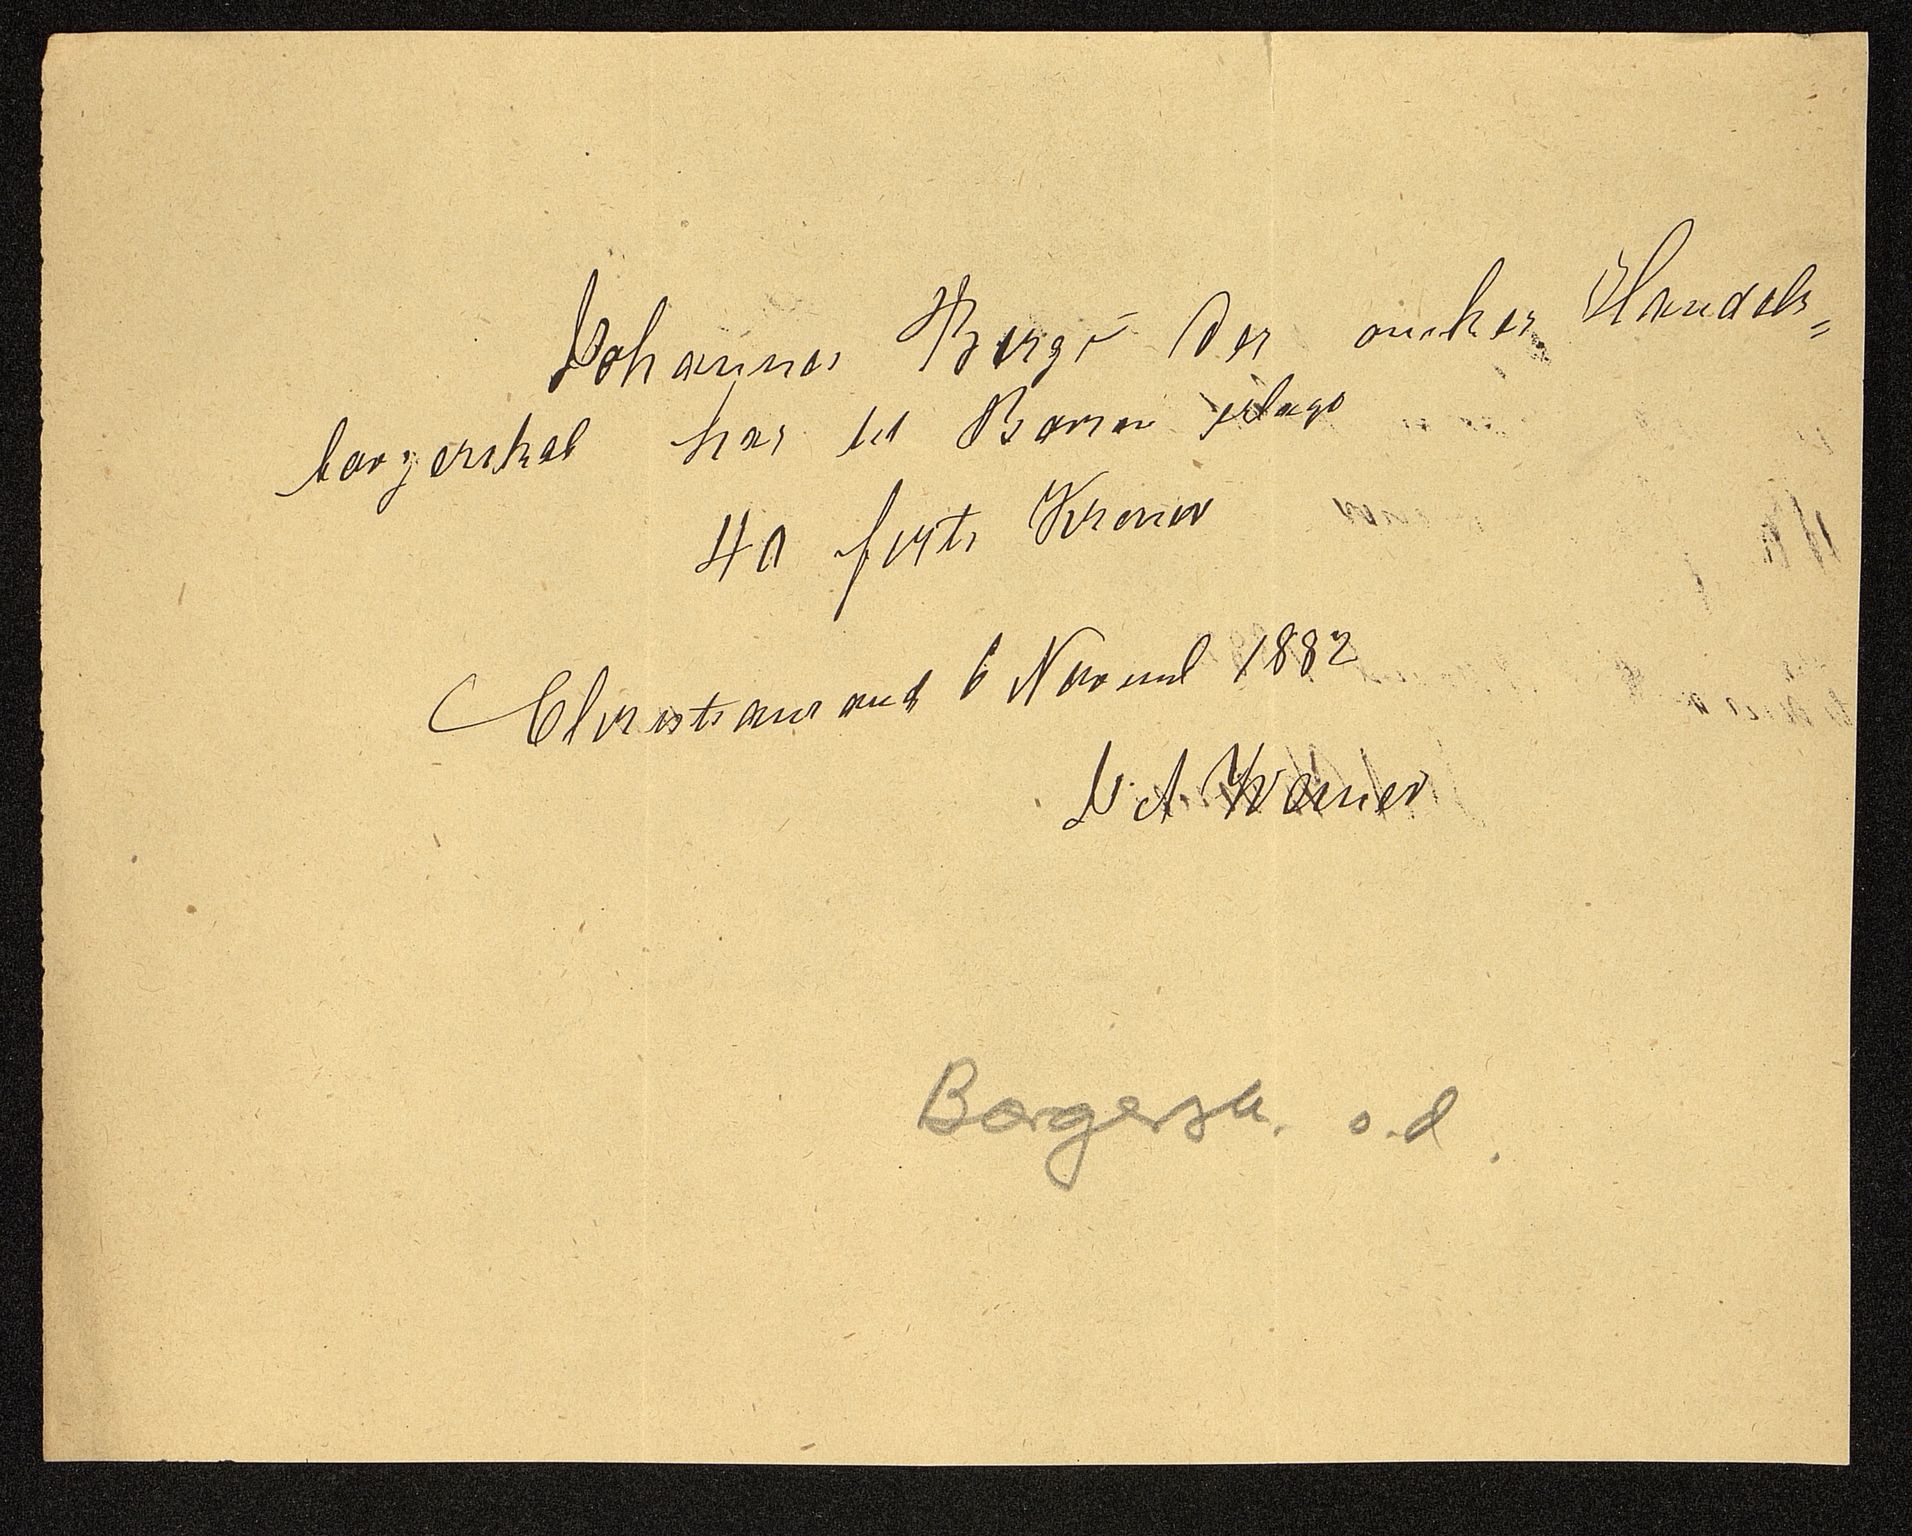 Johannes Bergē der onsker Handels=
borgerskab har til Byen erlagt
40 forti Kroner
Christianssand 6 Novemb 1882
A
Borgersk. o.d.